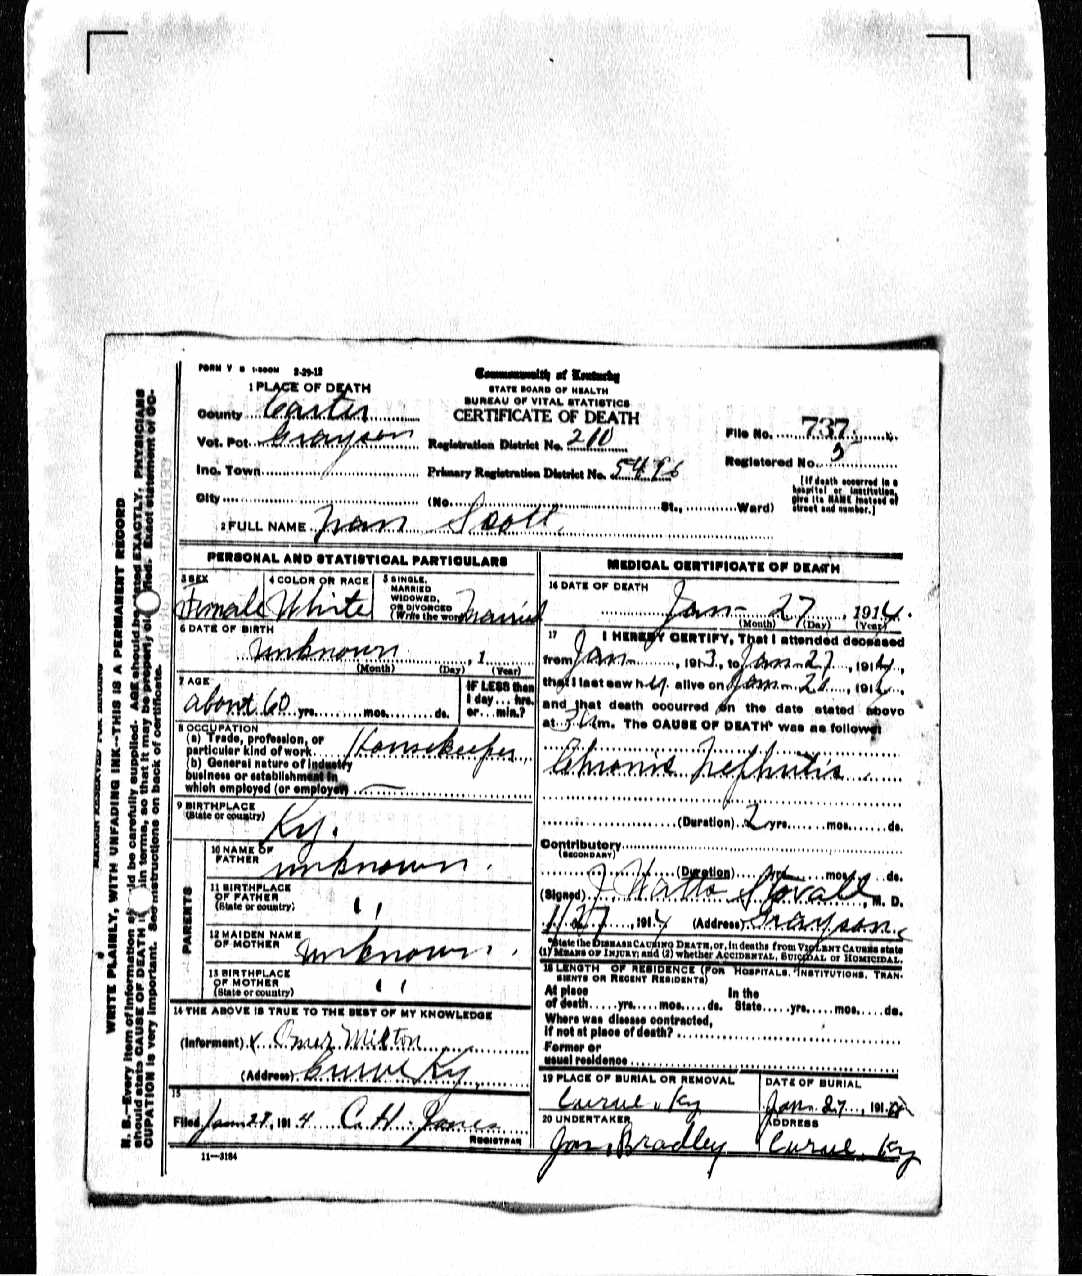 FORM V S 1-500M 2-29-12
Commonwealth of Kentucky
STATE BOARD OF HEALTH
BUREAU OF VITAL STATISTICS
CERTIFICATE OF DEATH
1 PLACE OF DEATH
County Carter
Vot. Pct. Grayson
Inc. Town
City
Registration District No. 210
Primary Registration District No. 5496
(No. St., Ward)
File No. 737
Registered No. 5
[If death occurred in a
hospital or institution,
give its NAME instead of
street and number.]
2 FULL NAME Scott
PERSONAL AND STATISTICAL PARTICULARS
3 SEX
Female
4 COLOR OR RACE
White
5 SINGLE,
MARRIED
WIDOWED,
OR DIVORCED
(Write the word) Married
6 DATE OF BIRTH
unknown , 1
(Month) (Day) (Year)
7 AGE
about 60 yrs. mos. ds.
IF LESS than
1 day... hrs.
or... min.?
8 OCCUPATION
(a) Trade, profession, or
particular kind of work Housekeeper
(b) General nature of industry
business or establishment in
which employed (or employer) —
9 BIRTHPLACE
(State or country)
Ky.
PARENTS
10 NAME OF
FATHER unknown.
11 BIRTHPLACE
OF FATHER
(State or country) " 
12 MAIDEN NAME
OF MOTHER unknown.
13 BIRTHPLACE
OF MOTHER
(State or country) "
14 THE ABOVE IS TRUE TO THE BEST OF MY KNOWLEDGE
(Informant) x Omer Milton
(Address) Curve Ky
15
Filed Jan 27, 1914 C. H. Jones
REGISTRAR
11—3184
MEDICAL CERTIFICATE OF DEATH
16 DATE OF DEATH
Jan- 27, 1914.
(Month) (Day) (Year)
17 I HEREBY CERTIFY, That I attended deceased
from Jan- , 1913, to Jan-27, 1914,
that I last saw her alive on Jan- , 1914,
and that death occurred on the date stated above
at 3 am. The CAUSE OF DEATH* was as follows:
Chronic Nephritis
(Duration) 2 yrs. mos. ds.
Contributory
(SECONDARY)
(Duration) yrs. mos. ds.
(Signed) J Watts Stovall, M. D.
1/27, 1914 (Address) Grayson
*State the DISEASE CAUSING DEATH, or, in deaths from VIOLENT CAUSES state
(1) MEANS OF INJURY; and (2) whether ACCIDENTAL, SUICIDAL or HOMICIDAL.
18 LENGTH OF RESIDENCE (FOR HOSPITALS, INSTITUTIONS, TRAN-
SIENTS OR RECENT RESIDENTS)
At place In the
of death yrs. mos. ds. State yrs. mos. ds.
Where was disease contracted,
if not at place of death?
Former or
usual residence
19 PLACE OF BURIAL OR REMOVAL
Curve, Ky
DATE OF BURIAL
Jan. 27, 191
20 UNDERTAKER
Bradley
ADDRESS
Curve, Ky
WRITE PLAINLY, WITH UNFADING INK--THIS IS A PERMANENT RECORD
N. B.—Every item of information be carefully supplied. AGE should be EXACTLY. PHYSICIANS
should state CAUSE OF DEATH in terms, so that it may be properly Exact statement of OC-
CUPATION is very important. See instructions on back of certificate.